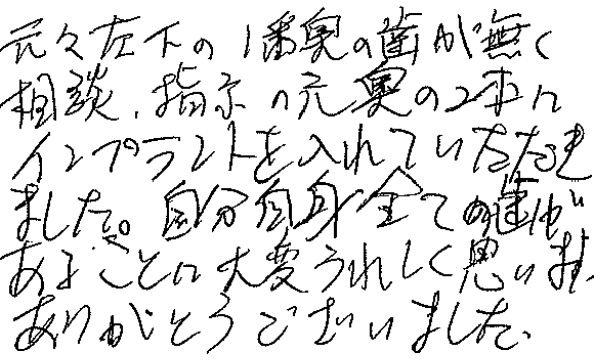 元々左下の1番奥の歯が無く
相談、指示の元奥の2本に
インプラントを入れていただき
ました。自分自身全ての歯が
あることに大変うれしく思います
ありがとうございました。